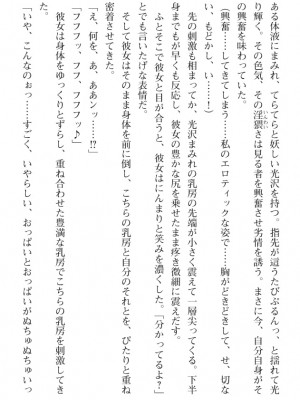 ある体液にまみれ、てらてらと妖しい光沢を持つ。指先が這うたびぷるんっ、と揺れて光
り輝く、その色気、その淫猥さは見る者を興奮させて劣情を誘う。まさに今、自分自身がそ
の興奮を味わっていた。
（興奮……してきてしまう……私のエロティックな姿で……胸がどきどきして、せ、切な
い、もどかし、い……！）
先の刺激も相まってか、光沢まみれの乳房の先端が小さく震えて一層尖ってくる。下半
身までもが早くも反応し、彼女の豊かな尻を乗せたまま疼き微細に震えだす。
ふとそこで彼女と目が合うと、彼女はにんまりと笑みを濃くした。「分かってるよ？」
とでも言いたげな表情だ。
そして彼女はそのまま身体を前に倒し、こちらの乳房と自分のそれとを、ぴたりと重ね
密着させてきた。
「え、何を、あ、ああンッ……⁉」
「フフフッ、フフフッ♪」
彼女は身体をゆっくりとずらし、重ね合わせた豊満な乳房でこちらの乳房を刺激してき
た。
「いや、こんなのぉっ……すごく、いやらしい、おっぱいとおっぱいがぬちゅぬちゅいっ